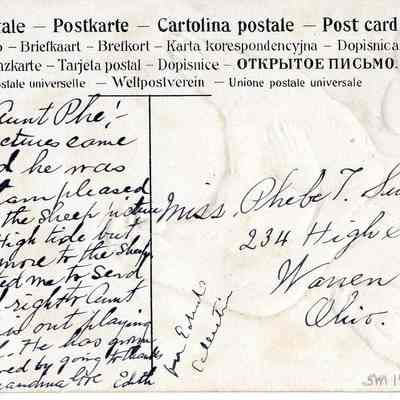 ale — Postkarte — Cartolina postale — Post card
o — Briefkaart — Brefkort — Karta korespondencyjna — Dopisnica
nzkarte — Tarjeta postal — Dopisnice — ОТКРЫТОЕ ПИСЬМО.
stale universelle — Weltpostverein — Unione postale universale
Aunt Phe!-
ctures came
d he was
am pleased
the sheep picture
High tide but
more to the Sheep.
ed me to send
right to Aunt
out playing
. He has grown
by going to
love Edith
Miss. Phebe T. Su
234 High
Warren
Ohio.
for Edith's
Collection
SM 1